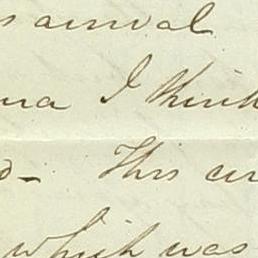 s arrival
ma I think
d - This
which was